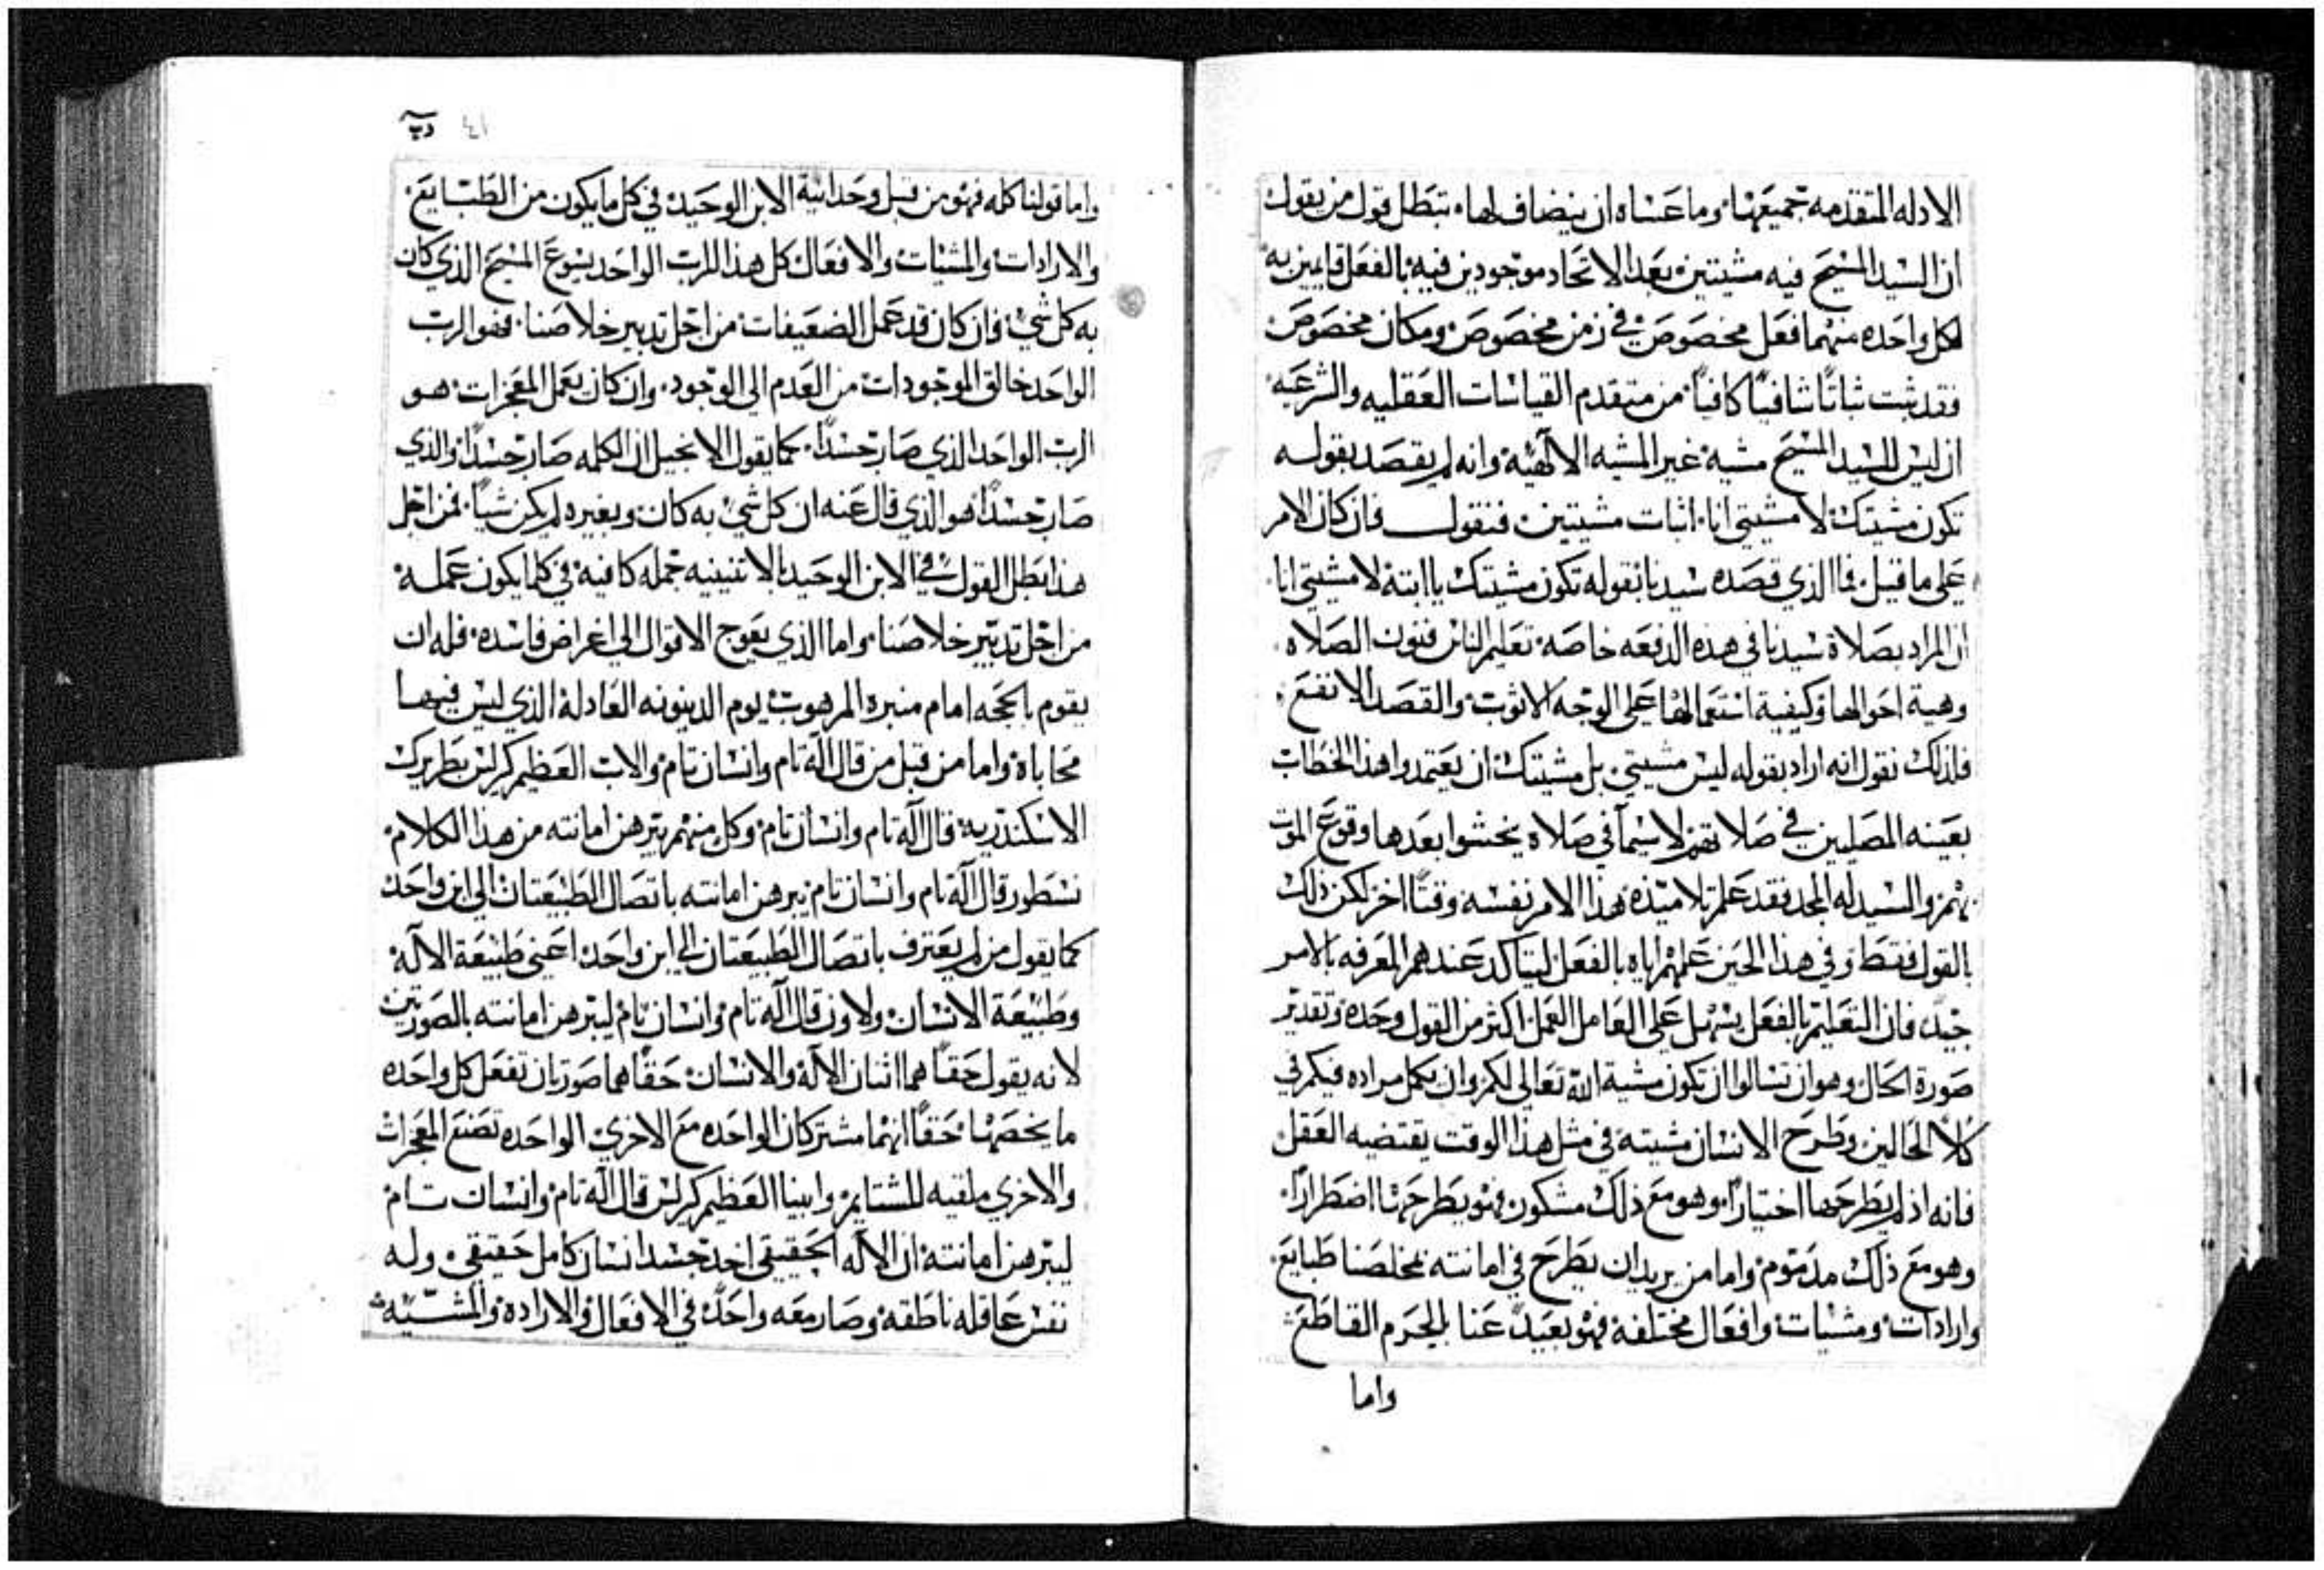 الادله المتقدمه جميعها وما عساه ان ينضاف لها تبطل قول من يقول
ان السيد المسيح فيه مشيتين بعد الاتحاد موجودين فيه بالفعل قايمين به
لكل واحده منهما فعل مخصوص في زمن مخصوص ومكان مخصوص
فقد ثبت ثباتًا شافيًا كافيًا من متقدم القياسات العقليه والشرعيه
ان ليس للسيد المسيح مشية غير المشيه الالهية وانه لم يقصد بقوله
تكون مشيتك لا مشيتي انا اثبات مشيتين فنقول فان كان الامر
على ما قيل فما الذي قصده سيدنا بقوله تكون مشيتك يا ابتة لا مشيتي انا
ان المراد بصلاة سيدنا في هذه الدفعه خاصة تعليم الناس فنون الصلاه
وهية احوالها وكيفية استعمالها على الوجه الاثوب والقصد الانفع
فلذلك نقول انه اراد بقوله ليس مشيتي بل مشيتك ان يعتمدوا هذا الخطاب
بعينه المصليين في صلاتهم لا سيما في صلاه يخشوا بعدها وقوع الموت
بهم والسيد له المجد فقد علم تلاميذه هذا الامر نفسه وقتًا اخر لكن ذلك
بالقول فقط وفي هذا الحين علمهم اياه بالفعل ليتاكد عندهم المعرفه بالامر
جيد فان التعليم بالفعل يسهل على العامل العمل اكثر من القول وحده وتقدير
صورة الحال وهو ان تسالوا ان تكون مشية الله تعالى لكم وان يكمل مراده فيكم في
كلا الحالين وطرح الانسان مشيته في مثل هذا الوقت يقتضيه العقل
فانه اذ لم يطرحها اختيارًا وهو مع ذلك مشكون فهو يطرحها اضطرارًا
وهو مع ذلك مذموم واما من يريد ان يطرح في امانته بمخلصنا طبايع
وارادات ومشيات وافعال مختلفة فهو بعيد عنا بالجرم القاطع
واما
٤١
واما قولنا كله فهو من قبل وحدانية الابن الوحيد في كل ما يكون من الطبايع
والارادات والمشيات والافعال كل هذا للرب الواحد يسوع المسيح الذي كان
به كل شي فان كان قد عمل الضعيفات من اجل تدبير خلاصنا فهو الرب
الواحد خالق الموجودات من العدم الى الوجود وان كان يعمل المعجزات هو
الرب الواحد الذي صار جسدًا كما يقول الانجيل ان الكلمه صار جسدًا والذي
صار جسدًا هو الذي قال عنه ان كل شي به كان وبغيره لم يكن شيًا فمن اجل
هذا بطل القول في الابن الوحيد بالاثنينيه جمله كافيه في كلما يكون عمله
من اجل تدبير خلاصنا واما الذي يعوج الاقوال الى اغراض فاسده فله ان
يقوم بالحجه امام منبره المرهوب يوم الدينونه العادلة الذي ليس فيها
محاباة واما من قبل من قال اله تام وانسان تام والاب العظيم كرلس بطريرك
الاسكندريه قال اله تام وانسان تام وكل منهم يبرهن امانته من هذا الكلام
نسطور قال اله تام وانسان تام يبرهن امانته باتصال الطبيعتان الى ابن واحد
كما يقول من لم يعترف باتصال الطبيعتان الى ابن واحد اعني طبيعة الاله
وطبيعة الانسان ولاون قال اله تام وانسان تام ليبرهن امانته بالصورتين
لانه يقول حقًا هما اثنان الاله والانسان حقًا هما صورتان تفعل كل واحده
ما يخصها حقًا انهما مشتركان الواحده مع الاخرى الواحده تصنع المعجزات
والاخرى ملقيه للشتايم وابينا العظيم كرلس قال اله تام وانسان تام
ليبرهن امانته ان الاله الحقيقي اخذ جسد انسان كامل حقيقي وله
نفس عاقله ناطقه وصار معه واحد في الافعال والاراده والمشيّه